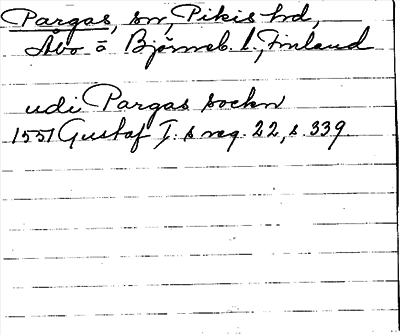 Pargas, sn, Pikis hd,
Åbo o Björneb. l., Finland
udi Pargas sockn
1551 Gustaf I:s reg. 22, s. 339